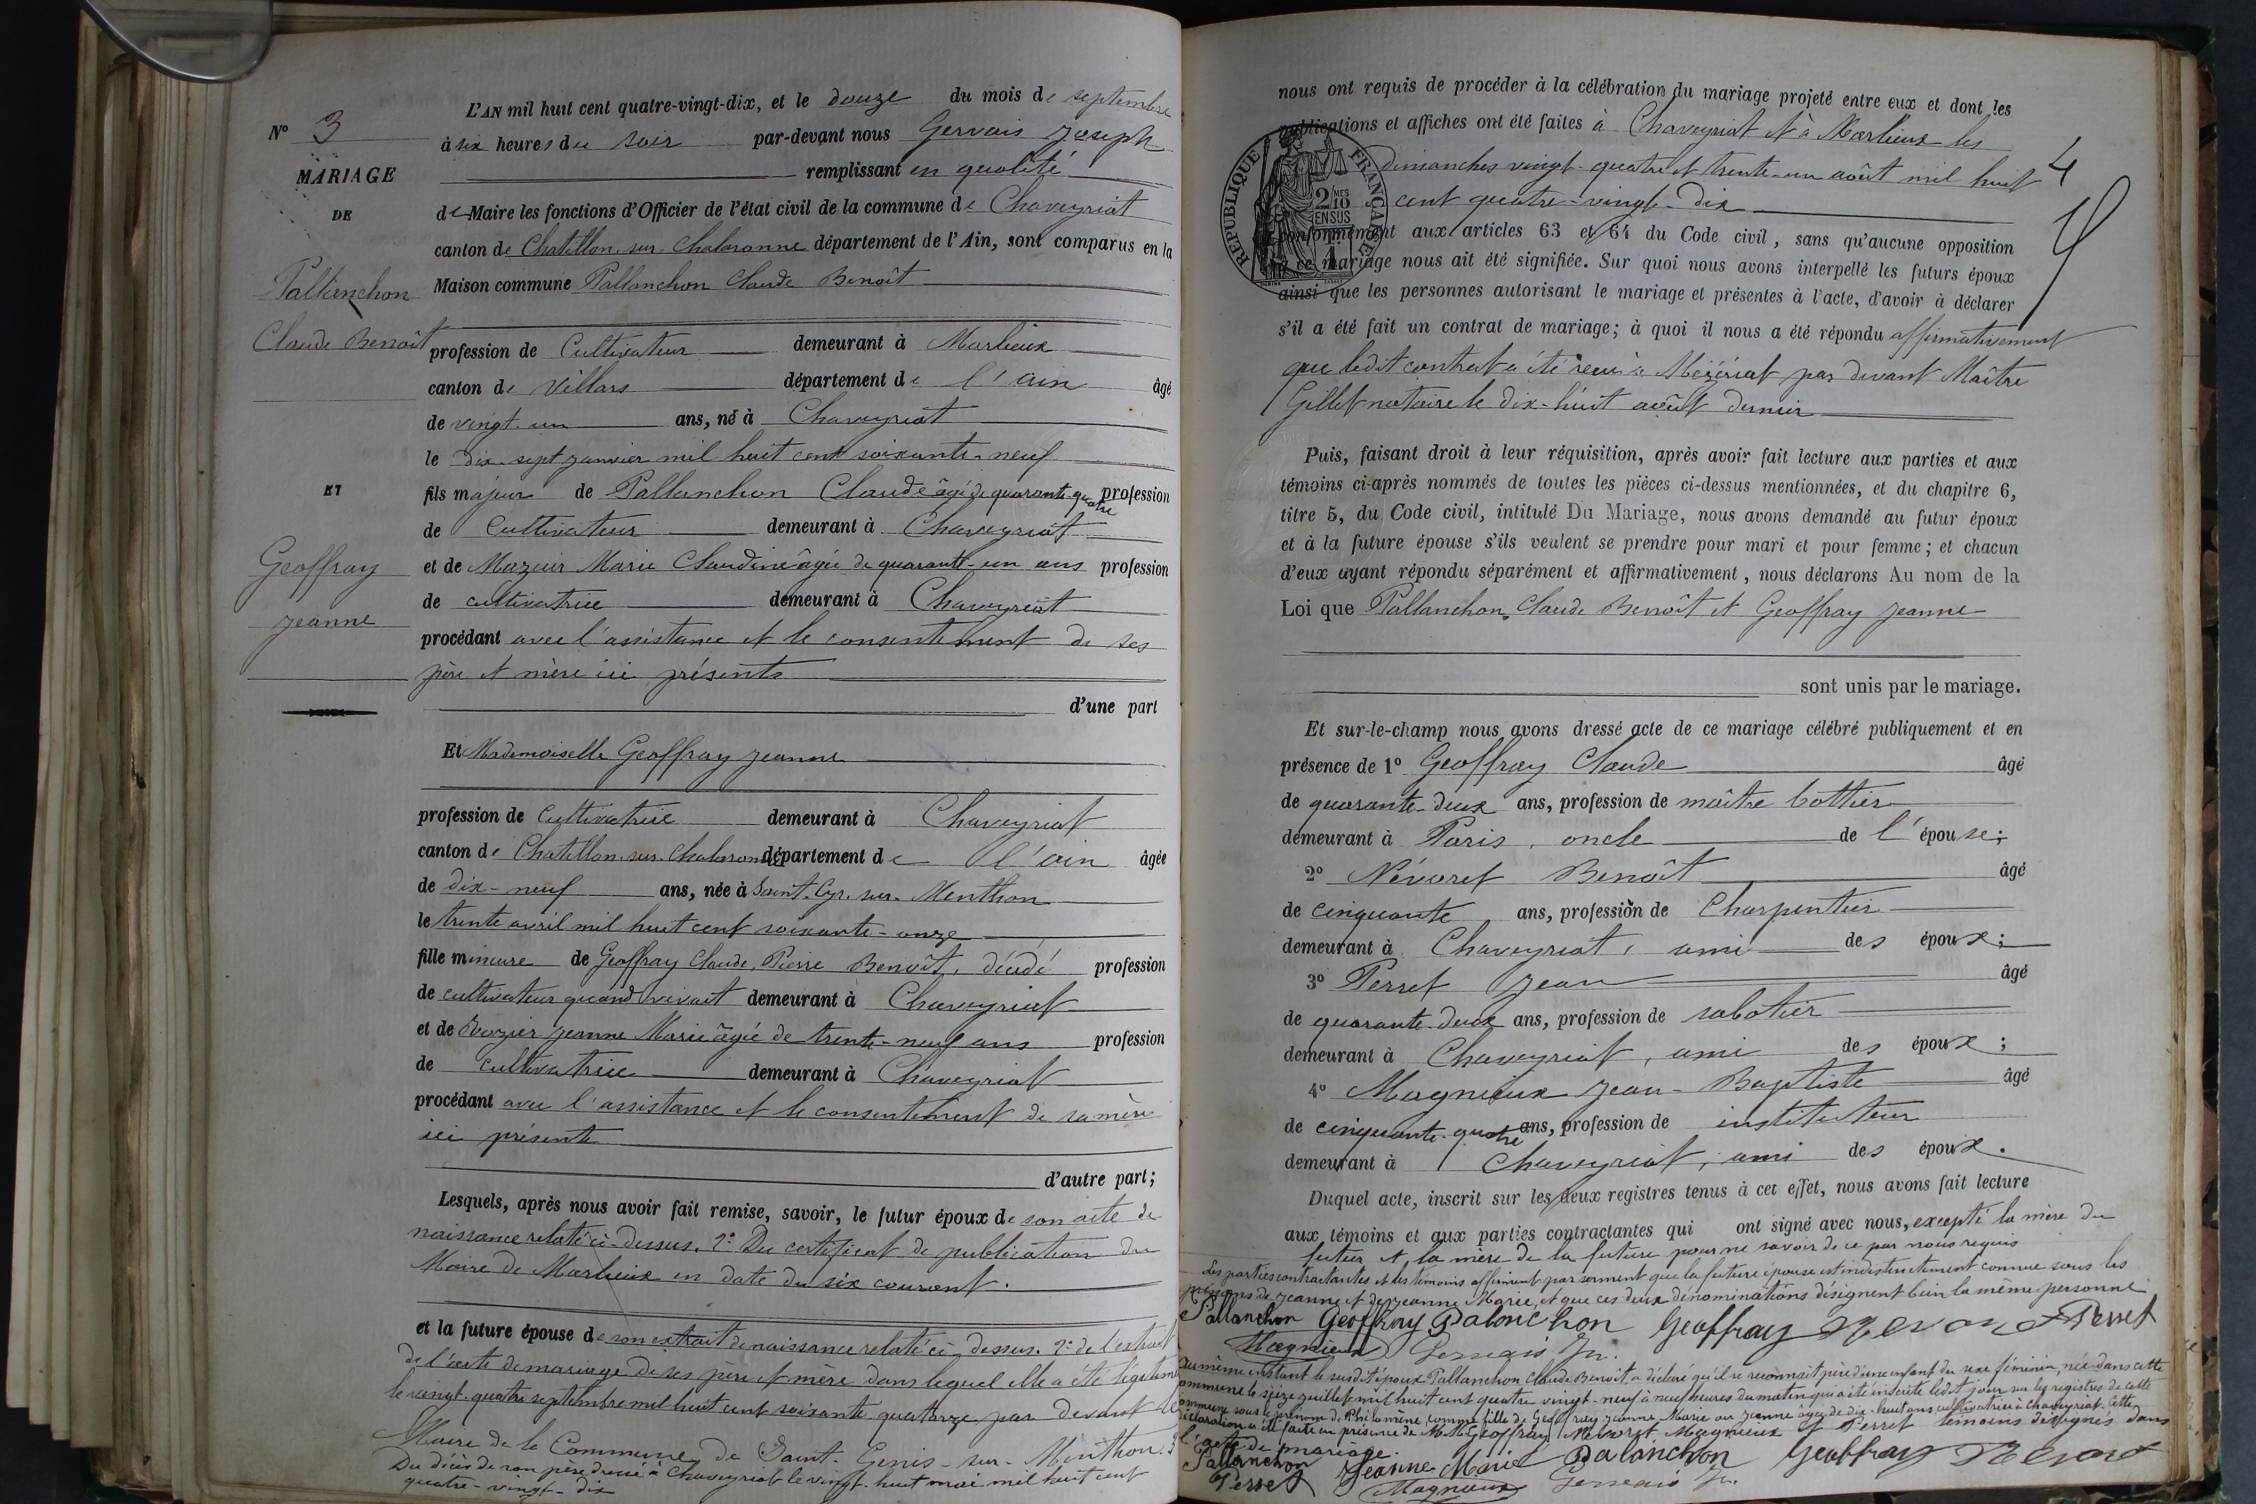 L'AN mil huit cent quatre-vingt-dix, et le douze du mois de septembre
N° 3
à six heures du soir par-devant nous Gervais Joseph
remplissant en qualité
MARIAGE
DE
de Maire les fonctions d'Officier de l'état civil de la commune de Chaveyriat
canton de Chatillon-sur-Chalaronne département de l'Ain, sont comparus en la
Maison commune Pallanchon Claude Benoît
Pallanchon
Claude Benoît
profession de Cultivateur demeurant à Marlieux
canton de Villars département de l'ain âgé
de vingt-un ans, né à Chaveyriat
le dix-sept janvier mil huit cent soixante-neuf
ET
fils majeur de Pallanchon Claude âgé de quarante-quatre profession
de Cultivateur demeurant à Chaveyriat
Geoffray
Jeanne
et de Mazuir Marie Claudine âgée de quarante-un ans profession
de cultivatrice demeurant à Chaveyriat
procédant avec l'assistance et le consentement de ses
père et mère ici présents
d'une part
Et Mademoiselle Geoffray Jeanne
profession de Cultivatrice demeurant à Chaveyriat
canton de Chatillon-sur-Chalaronne département de l'ain âgée
de dix-neuf ans, née à Saint-Cyr-sur-Menthon
le trente avril mil huit cent soixante-onze
fille mineure de Geoffray Claude, Pierre Benoît, décédé profession
de cultivateur quand vivait demeurant à Chaveyriat
et de Bozier Jeanne Marie âgée de trente-neuf ans profession
de cultivatrice demeurant à Chaveyriat
procédant avec l'assistance et le consentement de sa mère
ici présente
d'autre part;
Lesquels, après nous avoir fait remise, savoir, le futur époux de son acte de
naissance relaté ci-dessus. 2° Du certificat de publication du
Maire de Marlieux en date du six courant.
et la future épouse de son extrait de naissance relaté ci-dessus. 2° de l'extrait
de l'acte de mariage de ses père et mère dans lequel elle a été légitimée
le vingt-quatre septembre mil huit cent soixante quatorze par devant le
Maire de la Commune de Saint-Genis-sur-Menthon. 3°
Du décès de son père dressé à Chaveyriat le vingt-huit mai mil huit cent
quatre-vingt-dix
nous ont requis de procéder à la célébration du mariage projeté entre eux et dont les
publications et affiches ont été faites à Chaveyriat et à Marlieux les
dimanches vingt-quatre et trente-un août mil huit
cent quatre-vingt-dix
4
RÉPUBLIQUE FRANÇAISE
2/10 EN SUS
conformément aux articles 63 et 64 du Code civil, sans qu'aucune opposition
à ce mariage nous ait été signifiée. Sur quoi nous avons interpellé les futurs époux
ainsi que les personnes autorisant le mariage et présentes à l'acte, d'avoir à déclarer
s'il a été fait un contrat de mariage; à quoi il nous a été répondu affirmativement
que ledit contrat a été reçu à Mézériat par devant Maître
Gillet notaire le dix-huit août dernier
Puis, faisant droit à leur réquisition, après avoir fait lecture aux parties et aux
témoins ci-après nommés de toutes les pièces ci-dessus mentionnées, et du chapitre 6,
titre 5, du Code civil, intitulé Du Mariage, nous avons demandé au futur époux
et à la future épouse s'ils veulent se prendre pour mari et pour femme; et chacun
d'eux ayant répondu séparément et affirmativement, nous déclarons Au nom de la
Loi que Pallanchon Claude Benoît et Geoffray Jeanne
sont unis par le mariage.
Et sur-le-champ nous avons dressé acte de ce mariage célébré publiquement et en
présence de 1° Geoffray Claude âgé
de quarante-deux ans, profession de maître bottier
demeurant à Paris, oncle de l'épouse;
2° Névoret Benoît âgé
de cinquante ans, profession de Charpentier
demeurant à Chaveyriat, ami des époux;
3° Perret Jean âgé
de quarante-deux ans, profession de sabotier
demeurant à Chaveyriat, ami des époux;
4° Magnieux Jean-Baptiste âgé
de cinquante-quatre ans, profession de instituteur
demeurant à Chaveyriat, ami des époux.
Duquel acte, inscrit sur les deux registres tenus à cet effet, nous avons fait lecture
aux témoins et aux parties contractantes qui ont signé avec nous, excepté la mère du
futur et la mère de la future pour ne savoir de ce par nous requis
Les parties contractantes et les témoins affirment par serment que la future épouse est indistinctement connue sous les
prénoms de Jeanne et de Jeanne Marie, et que ces deux dénominations désignent bien la même personne.
Pallanchon Geoffray Palanchon Geoffray Nevoret Perret
Magnieux Gervais Jh.
Au même instant le susdit époux Pallanchon Claude Benoît a déclaré qu'il se reconnaît père d'une enfant du sexe féminin, née dans cette
commune le seize juillet mil huit cent quatre vingt-neuf à neuf heures du matin qui a été inscrite ledit jour sur les registres de cette
commune sous le prénom de Philomène, comme fille de Geoffray Jeanne Marie ou Jeanne âgée de dix-huit ans cultivatrice à Chaveyriat. Cette
déclaration a été faite en présence de M.M. Geoffray, Névoret Magnieux et Perret témoins désignés dans
l'acte de mariage.
Pallanchon Jeanne Marie Palanchon Geoffray Nevoret
Perret Magnieux Gervais Jh.